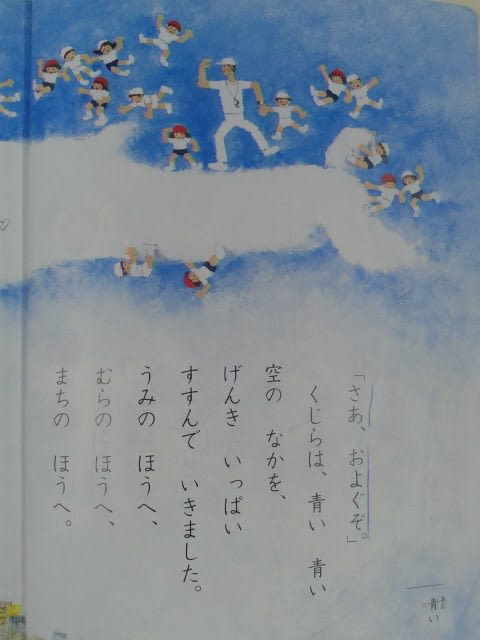 「さあ、およぐぞ。」
くじらは、青い　青い
空の　なかを、
げんき　いっぱい
すすんで　いきました。
うみの　ほうへ、
むらの　ほうへ、
まちの　ほうへ。
青い
あお